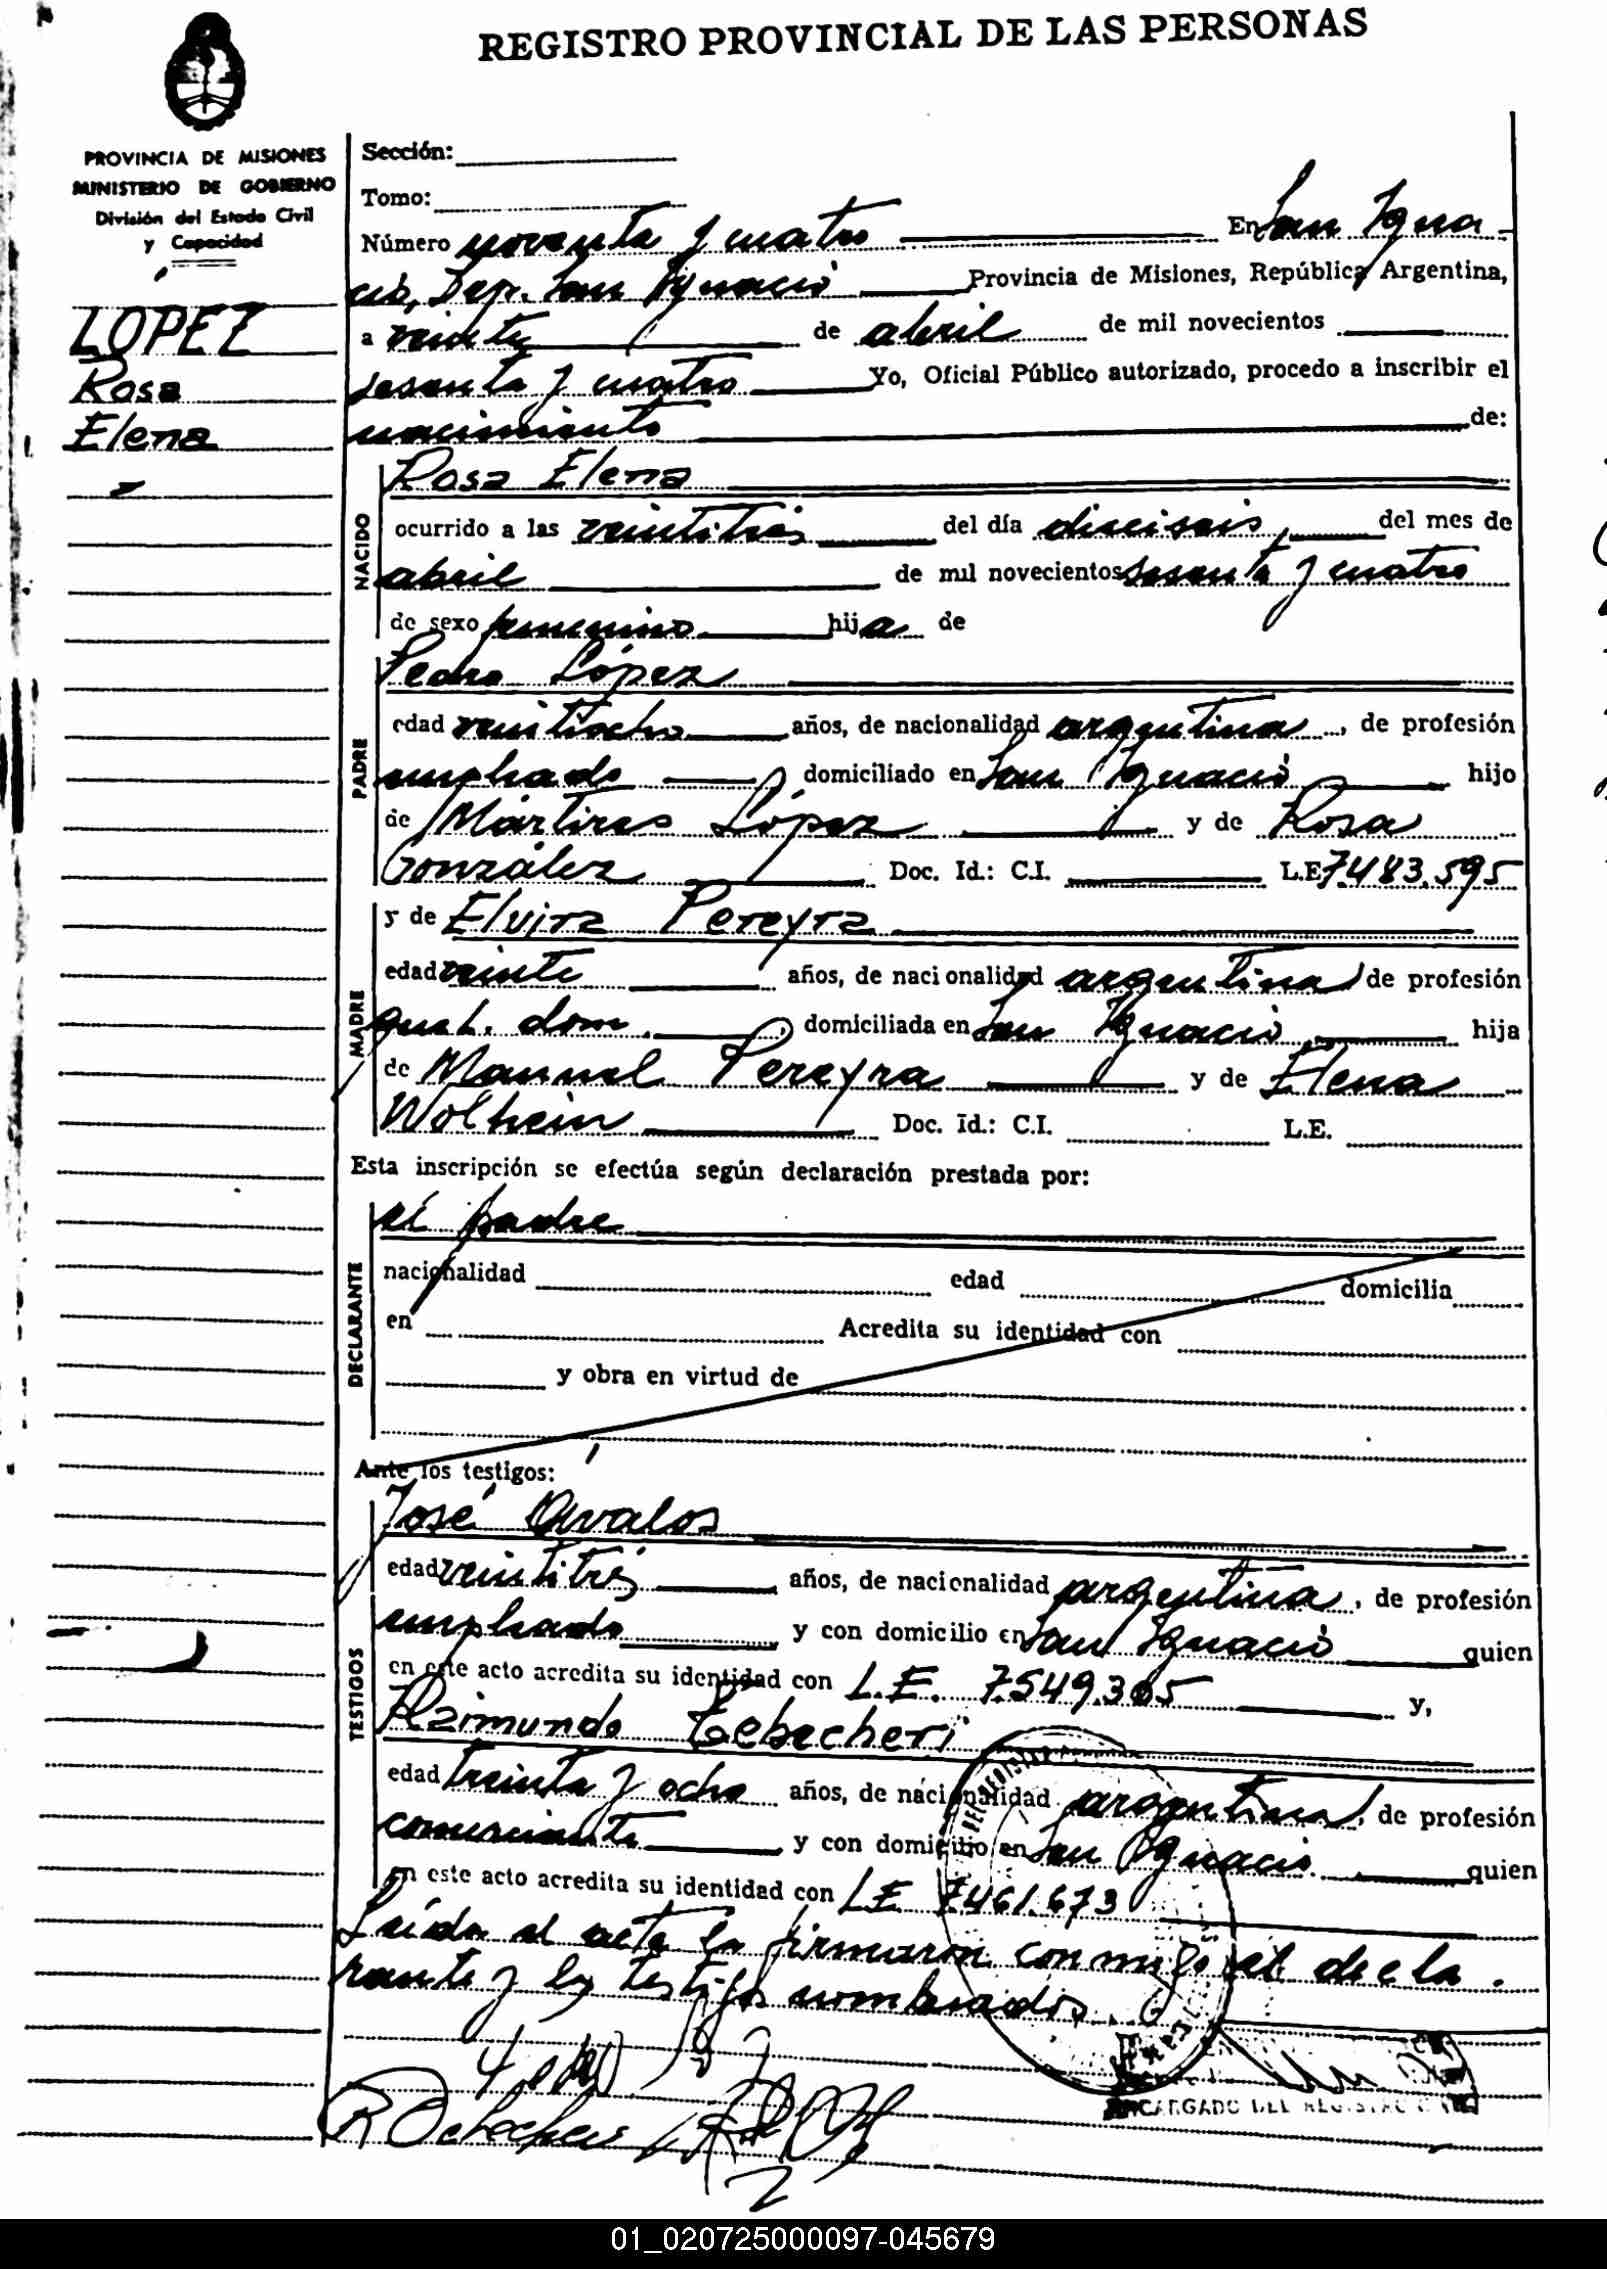 REGISTRO PROVINCIAL DE LAS PERSONAS
PROVINCIA DE MISIONES
MINISTERIO DE GOBIERNO
División del Estado Civil
y Capacidad
LOPEZ
Rosa
Elena
Sección:
Tomo:
Número noventa y cuatro En San Igna
cio, Dep. San Ignacio Provincia de Misiones, República Argentina,
a veinte de abril de mil novecientos
sesenta y cuatro Yo, Oficial Público autorizado, procedo a inscribir el
nacimiento de:
NACIDO
Rosa Elena
ocurrido a las veintitrés del día dieciseis del mes de
abril de mil novecientos sesenta y cuatro
de sexo femenino hija de
PADRE
Pedro López
edad veintiocho años, de nacionalidad argentina, de profesión
empleado domiciliado en San Ignacio hijo
de Mártires López y de Rosa
González Doc. Id.: C.I. L.E. 7.483.595
MADRE
y de Elvira Pereyra
edad veinte años, de nacionalidad argentina, de profesión
queh. dom. domiciliada en San Ignacio hija
de Manuel Pereyra y de Elena
Wolhein Doc. Id.: C.I. L.E.
Esta inscripción se efectúa según declaración prestada por:
DECLARANTE
el padre
nacionalidad edad domicilia
en Acredita su identidad con
y obra en virtud de
Ante los testigos:
TESTIGOS
José Avalos
edad veintitrés años, de nacionalidad argentina, de profesión
empleado y con domicilio en San Ignacio quien
en este acto acredita su identidad con L.E. 7.549.305 y,
Raimundo
edad treinta y ocho años, de nacionalidad argentina, de profesión
comerciante y con domicilio en San Ignacio. quien
en este acto acredita su identidad con L.E. 7.461.673
Leída el acta la firmaron conmigo el decla
rante y los testigos nombrados.
ENCARGADO DEL REGISTRO
01_020725000097-045679